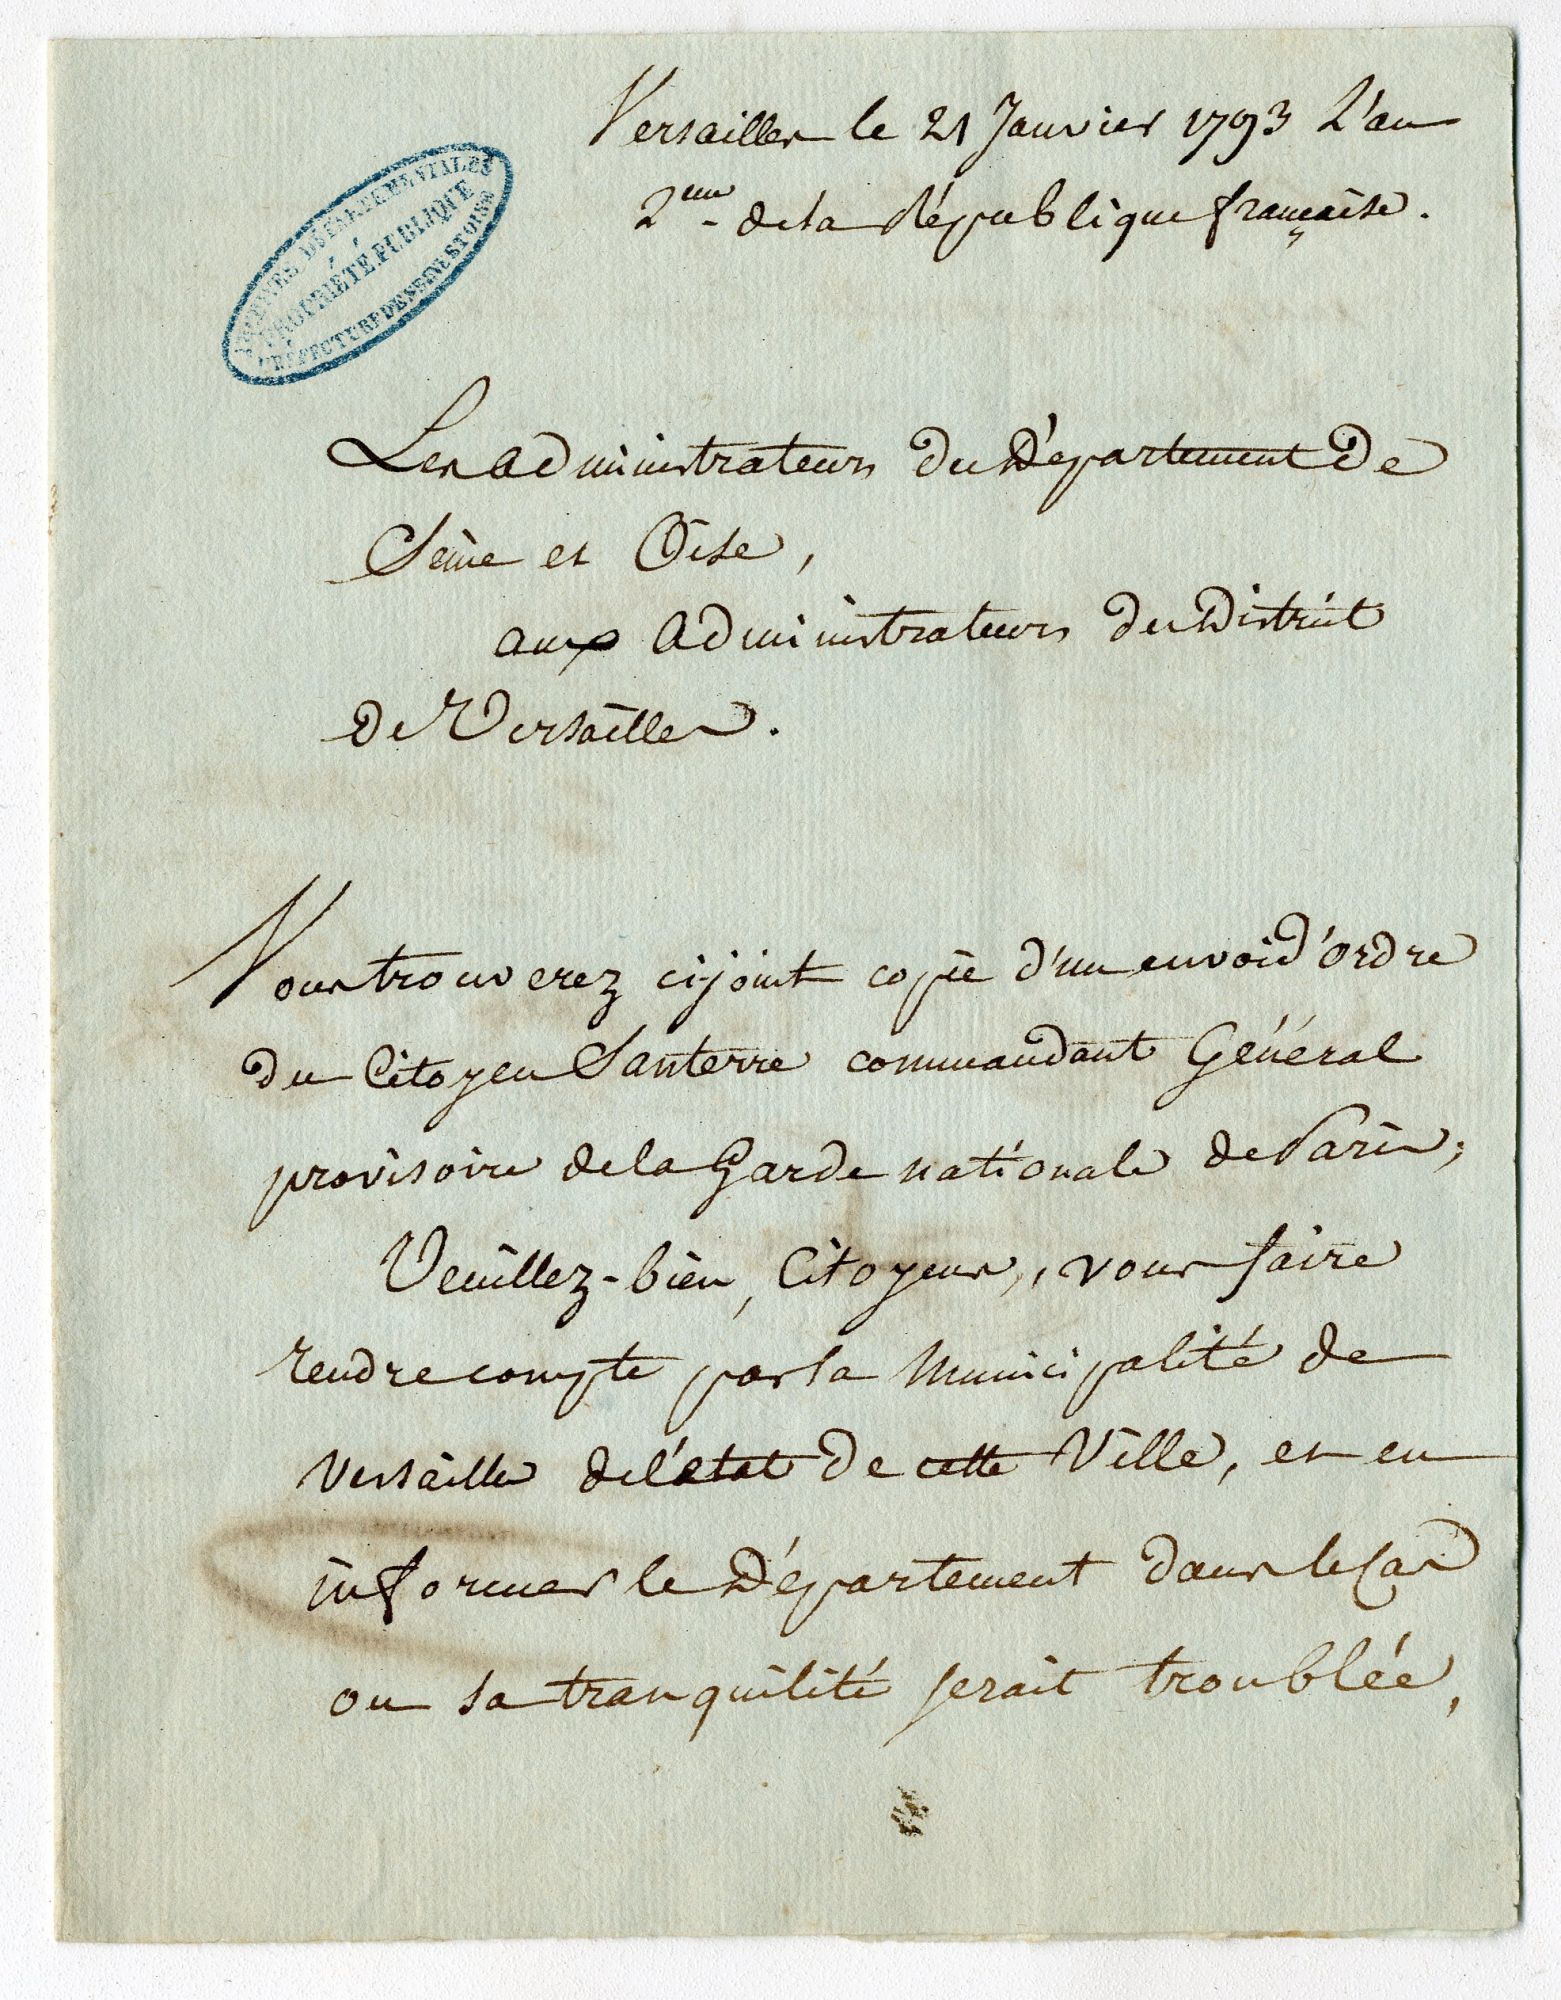 Versailles le 21 Janvier 1793 L'an
2eme de la République française.
ARCHIVES DÉPARTEMENTALES
PROPRIÉTÉ PUBLIQUE
PRÉFECTURE DE SEINE ET OISE
Les administrateurs du Département de
Seine et Oise,
aux administrateurs du District
de Versailles.
Vous trouverez cijoint copie d'un envoi d'ordre
du Citoyen Santerre commandant Général
provisoire de la Garde nationale de Paris;
Veuillez-bien, Citoyens, vous faire
rendre compte par la Municipalité de
Versailles de l'état de cette Ville, et en
informer le Département dans le Cas
ou sa tranquilité serait troublée,